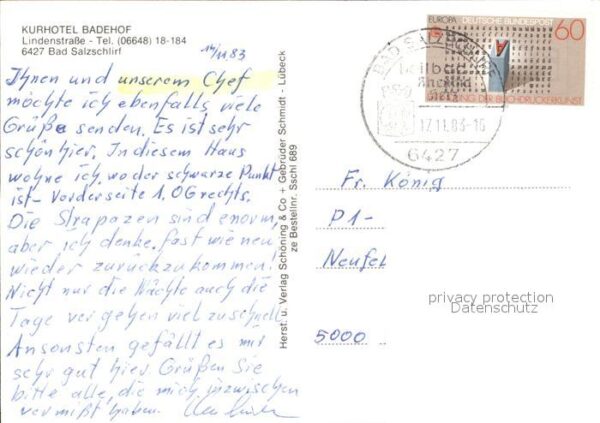 KURHOTEL BADEHOF
Lindenstraße - Tel. (06648) 18-184
6427 Bad Salzschlirf
14/11 83
Ihnen und unserem Chef
möchte ich ebenfalls viele
Grüße senden. Es ist sehr
schön hier. In diesem Haus
wohne ich, wo der schwarze Punkt
ist - Vorderseite 1. OG rechts.
Die Strapazen sind enorm,
aber ich denke fast wie neu
wieder zurückzukommen!
Nicht nur die Nächte auch die
Tage vergehen viel zu schnell
Ansonsten gefällt es mir
sehr gut hier. Grüßen Sie
bitte alle, die mich inzwischen
vermißt haben.
Herst. u. Verlag Schöning & Co + Gebrüder Schmidt - Lübeck
ze Bestellnr. Sschl 689
EUROPA DEUTSCHE BUNDESPOST 60
ERFINDUNG DER BUCHDRUCKERKUNST
BAD SALZSCHLIRF
17.11.83-16
6427
Fr. König
P1-
Neufel
5000
privacy protection
Datenschutz